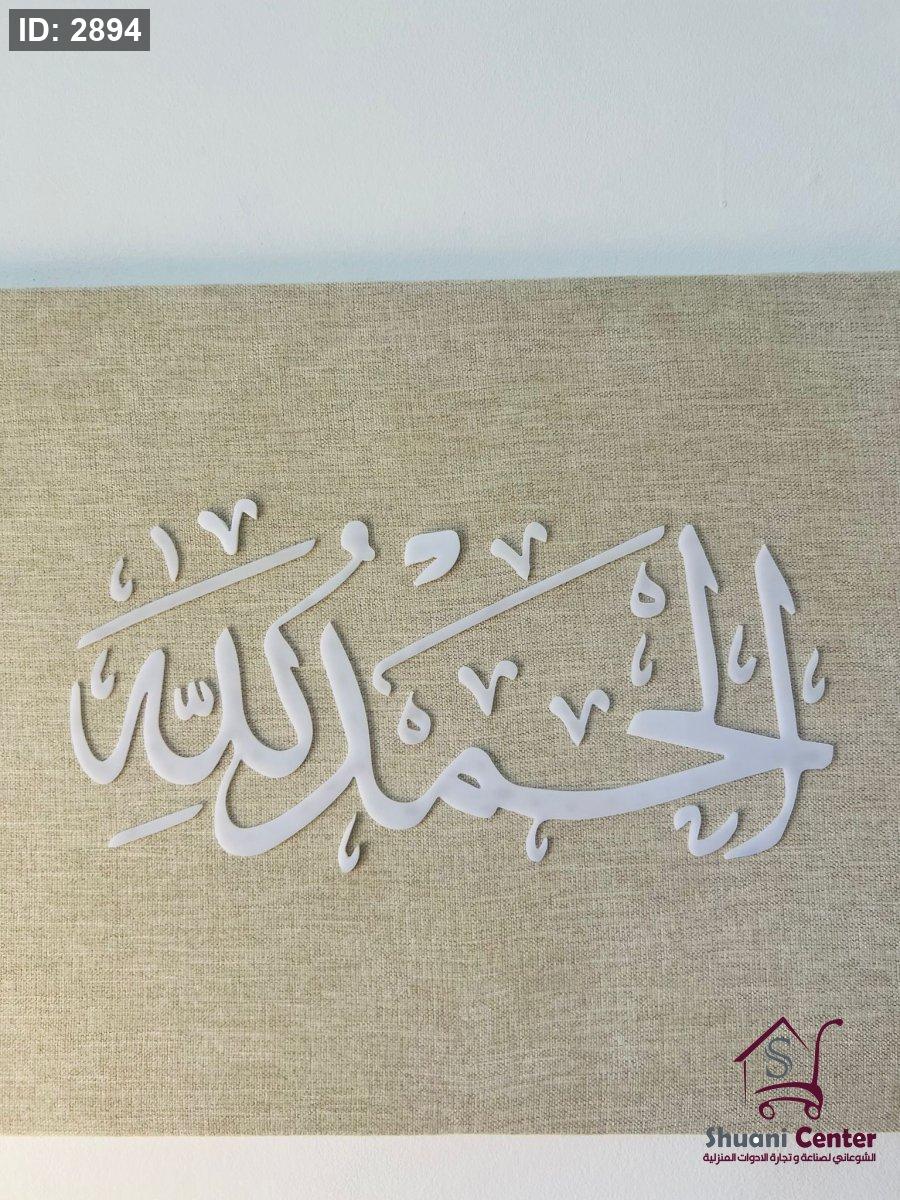 ID: 2894
الحمد لله
Shuani Center
الشوعاني لصناعة و تجارة الادوات المنزلية